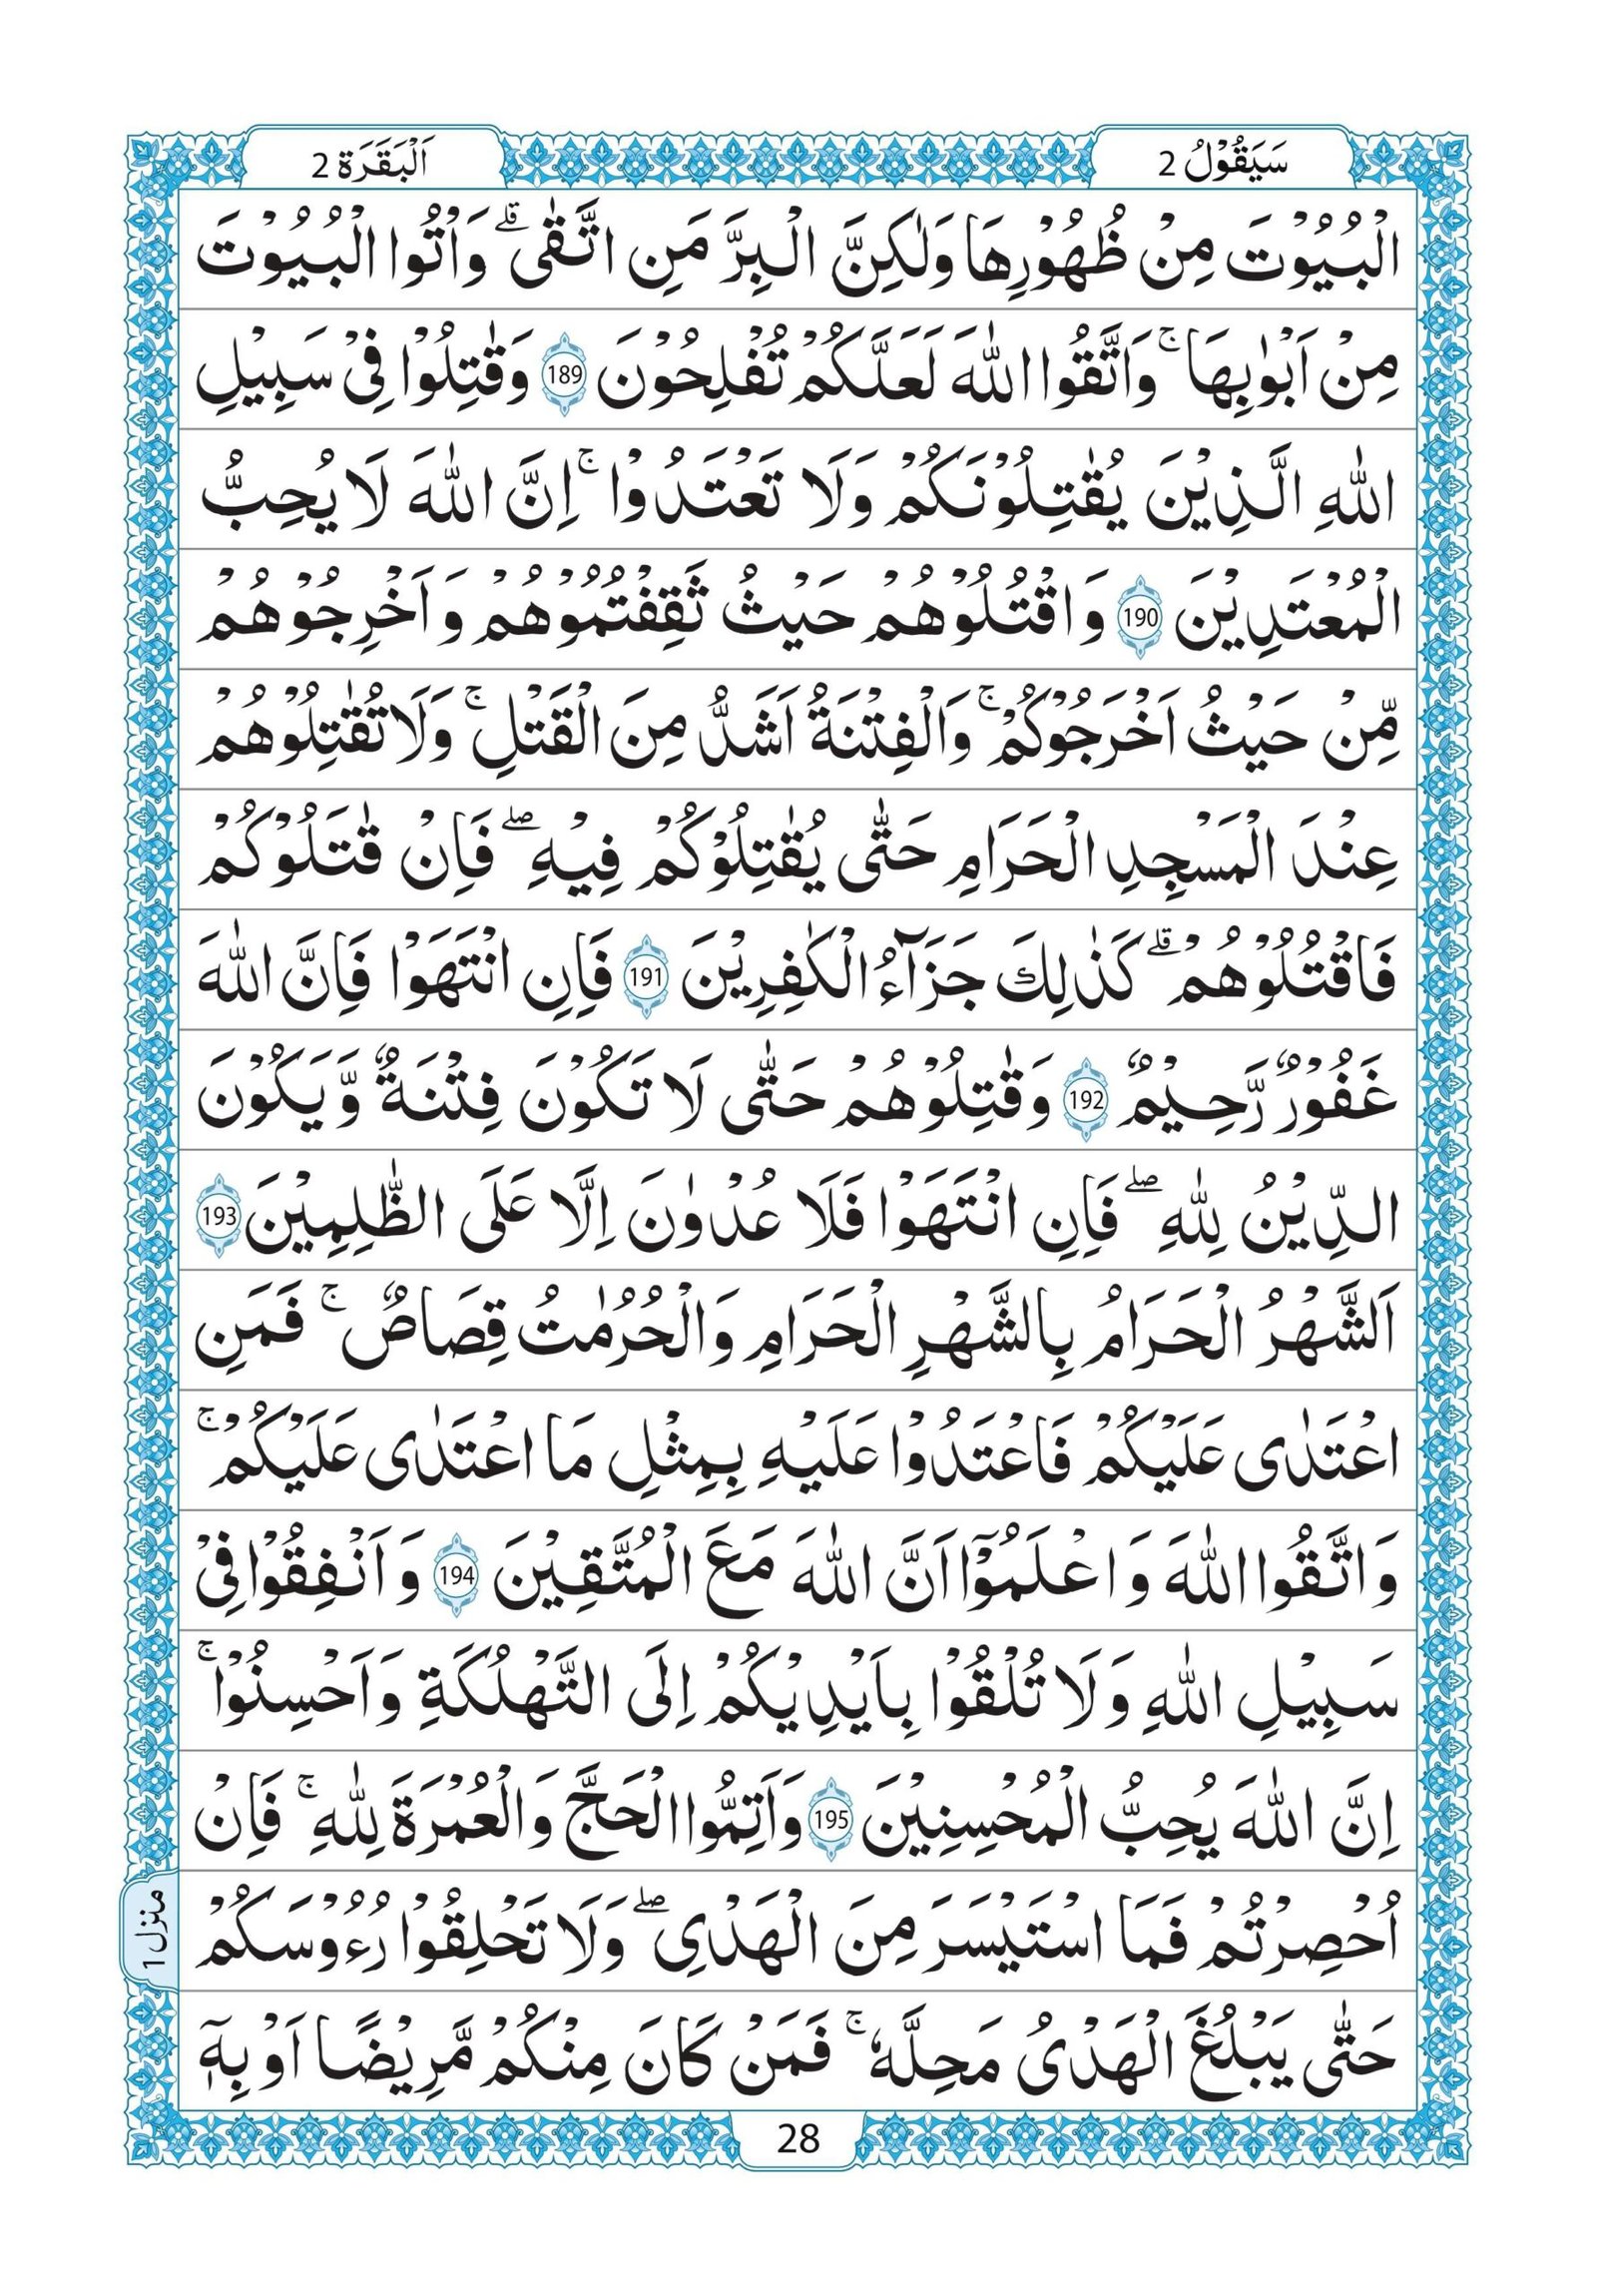 سَيَقُوْلُ 2
اَلْبَقَرَة 2
الْبُيُوْتَ مِنْ ظُهُوْرِهَا وَلٰكِنَّ الْبِرَّ مَنِ اتَّقٰىۚ وَاْتُوا الْبُيُوْتَ
مِنْ اَبْوٰبِهَاۚ وَاتَّقُوا اللّٰهَ لَعَلَّكُمْ تُفْلِحُوْنَ 189 وَقٰتِلُوْا فِيْ سَبِيْلِ
اللّٰهِ الَّذِيْنَ يُقٰتِلُوْنَكُمْ وَلَا تَعْتَدُوْاۚ اِنَّ اللّٰهَ لَا يُحِبُّ
الْمُعْتَدِيْنَ 190 وَاقْتُلُوْهُمْ حَيْثُ ثَقِفْتُمُوْهُمْ وَاَخْرِجُوْهُمْ
مِّنْ حَيْثُ اَخْرَجُوْكُمْۚ وَالْفِتْنَةُ اَشَدُّ مِنَ الْقَتْلِۚ وَلَا تُقٰتِلُوْهُمْ
عِنْدَ الْمَسْجِدِ الْحَرَامِ حَتّٰى يُقٰتِلُوْكُمْ فِيْهِۖ فَاِنْ قٰتَلُوْكُمْ
فَاقْتُلُوْهُمْۗ كَذٰلِكَ جَزَآءُ الْكٰفِرِيْنَ 191 فَاِنِ انْتَهَوْا فَاِنَّ اللّٰهَ
غَفُوْرٌ رَّحِيْمٌ 192 وَقٰتِلُوْهُمْ حَتّٰى لَا تَكُوْنَ فِتْنَةٌ وَّيَكُوْنَ
الدِّيْنُ لِلّٰهِۖ فَاِنِ انْتَهَوْا فَلَا عُدْوٰنَ اِلَّا عَلَى الظّٰلِمِيْنَ 193
اَلشَّهْرُ الْحَرَامُ بِالشَّهْرِ الْحَرَامِ وَالْحُرُمٰتُ قِصَاصٌۚ فَمَنِ
اعْتَدٰى عَلَيْكُمْ فَاعْتَدُوْا عَلَيْهِ بِمِثْلِ مَا اعْتَدٰى عَلَيْكُمْۚ
وَاتَّقُوا اللّٰهَ وَاعْلَمُوْٓا اَنَّ اللّٰهَ مَعَ الْمُتَّقِيْنَ 194 وَاَنْفِقُوْا فِيْ
سَبِيْلِ اللّٰهِ وَلَا تُلْقُوْا بِاَيْدِيْكُمْ اِلَى التَّهْلُكَةِ وَاَحْسِنُوْاۚ
اِنَّ اللّٰهَ يُحِبُّ الْمُحْسِنِيْنَ 195 وَاَتِمُّوا الْحَجَّ وَالْعُمْرَةَ لِلّٰهِۚ فَاِنْ
اُحْصِرْتُمْ فَمَا اسْتَيْسَرَ مِنَ الْهَدْيِۖ وَلَا تَحْلِقُوْا رُءُوْسَكُمْ
حَتّٰى يَبْلُغَ الْهَدْيُ مَحِلَّهٗۚ فَمَنْ كَانَ مِنْكُمْ مَّرِيْضًا اَوْ بِهٖٓ
منزل 1
28